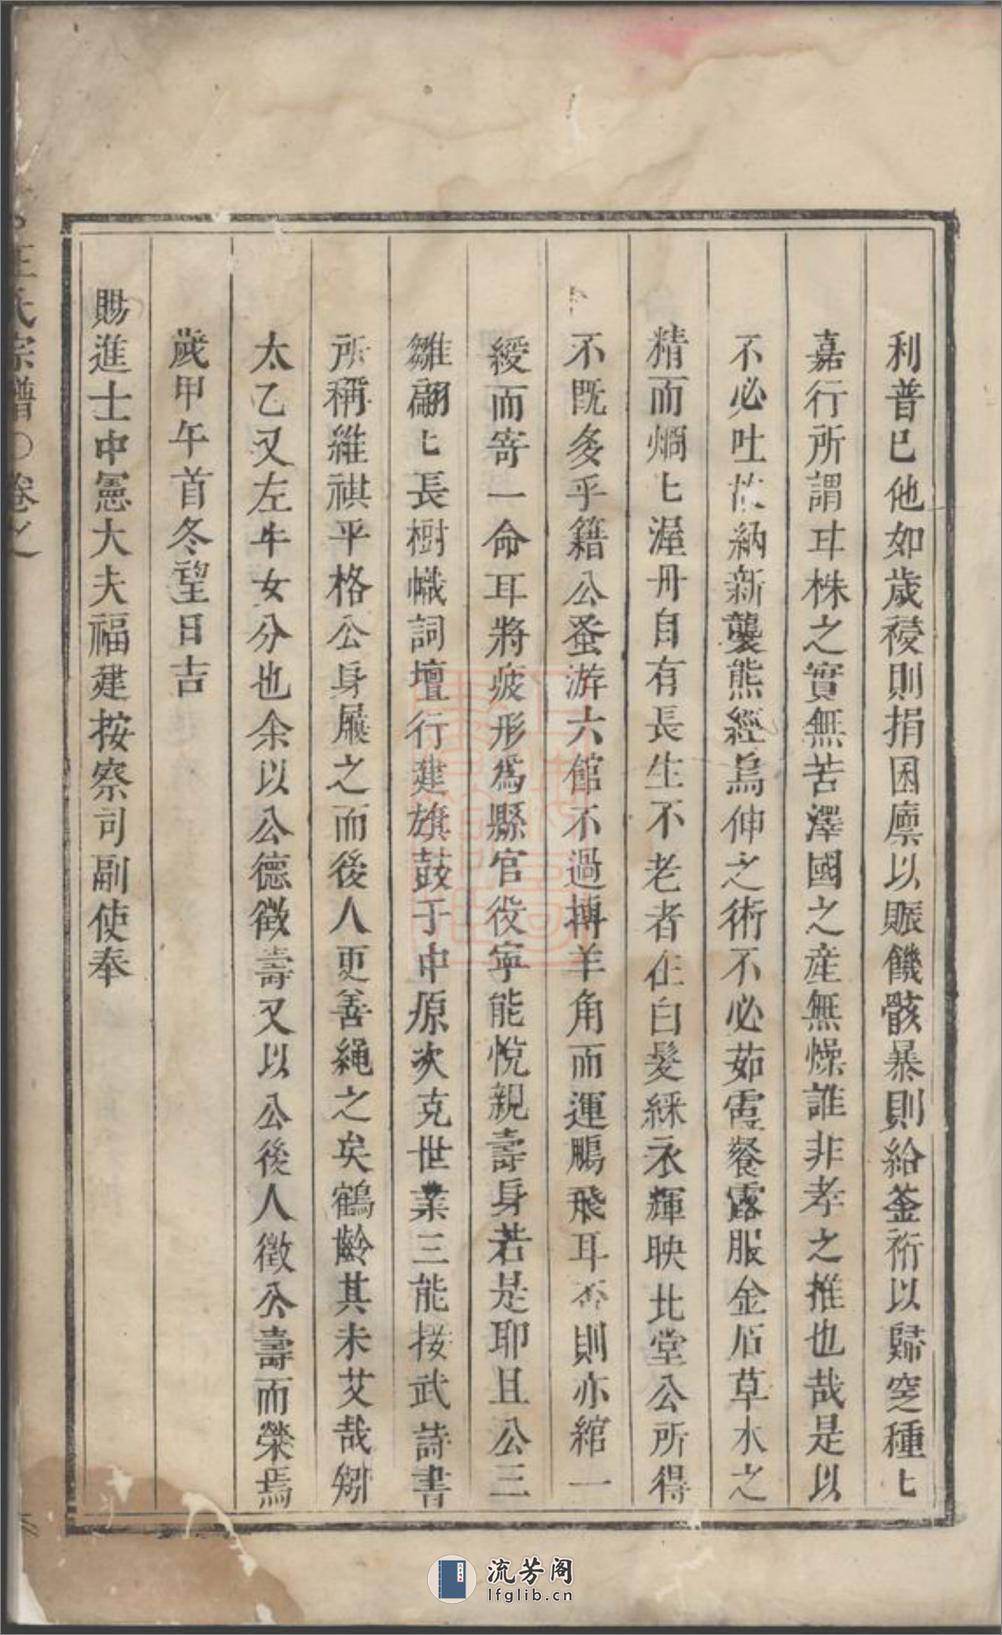 利普已他如歲祲則捐囷廪以賑饑骸暴則給釜裄以歸窆種匕
嘉行所謂玕株之實無苦澤國之産無燥誰非孝之推也哉是以
不必吐故納新襲熊經烏伸之術不必茹霞餐露服金石草木之
精而烱匕渥丹自有長生不老者在白髮綵衣輝映北堂公所得
不既多乎籍公蚤游六館不過搏羊角而運鵬飛耳否則亦綰一
綬而寄一命耳將疲形爲縣官役寧能悅親壽身若是耶且公三
雛翩匕長樹幟詞壇行建旗鼓于中原次克世業三能接武詩書
所稱維祺平格公身屨之而後人更善繩之矣鶴齡其未艾哉矧
太乙又左牛女分也余以公德徵壽又以公後人徵公壽而榮焉
歲甲午首冬望日吉
賜進士中憲大夫福建按察司副使奉
汪氏宗譜〇卷之
流芳阁
lfglib.cn